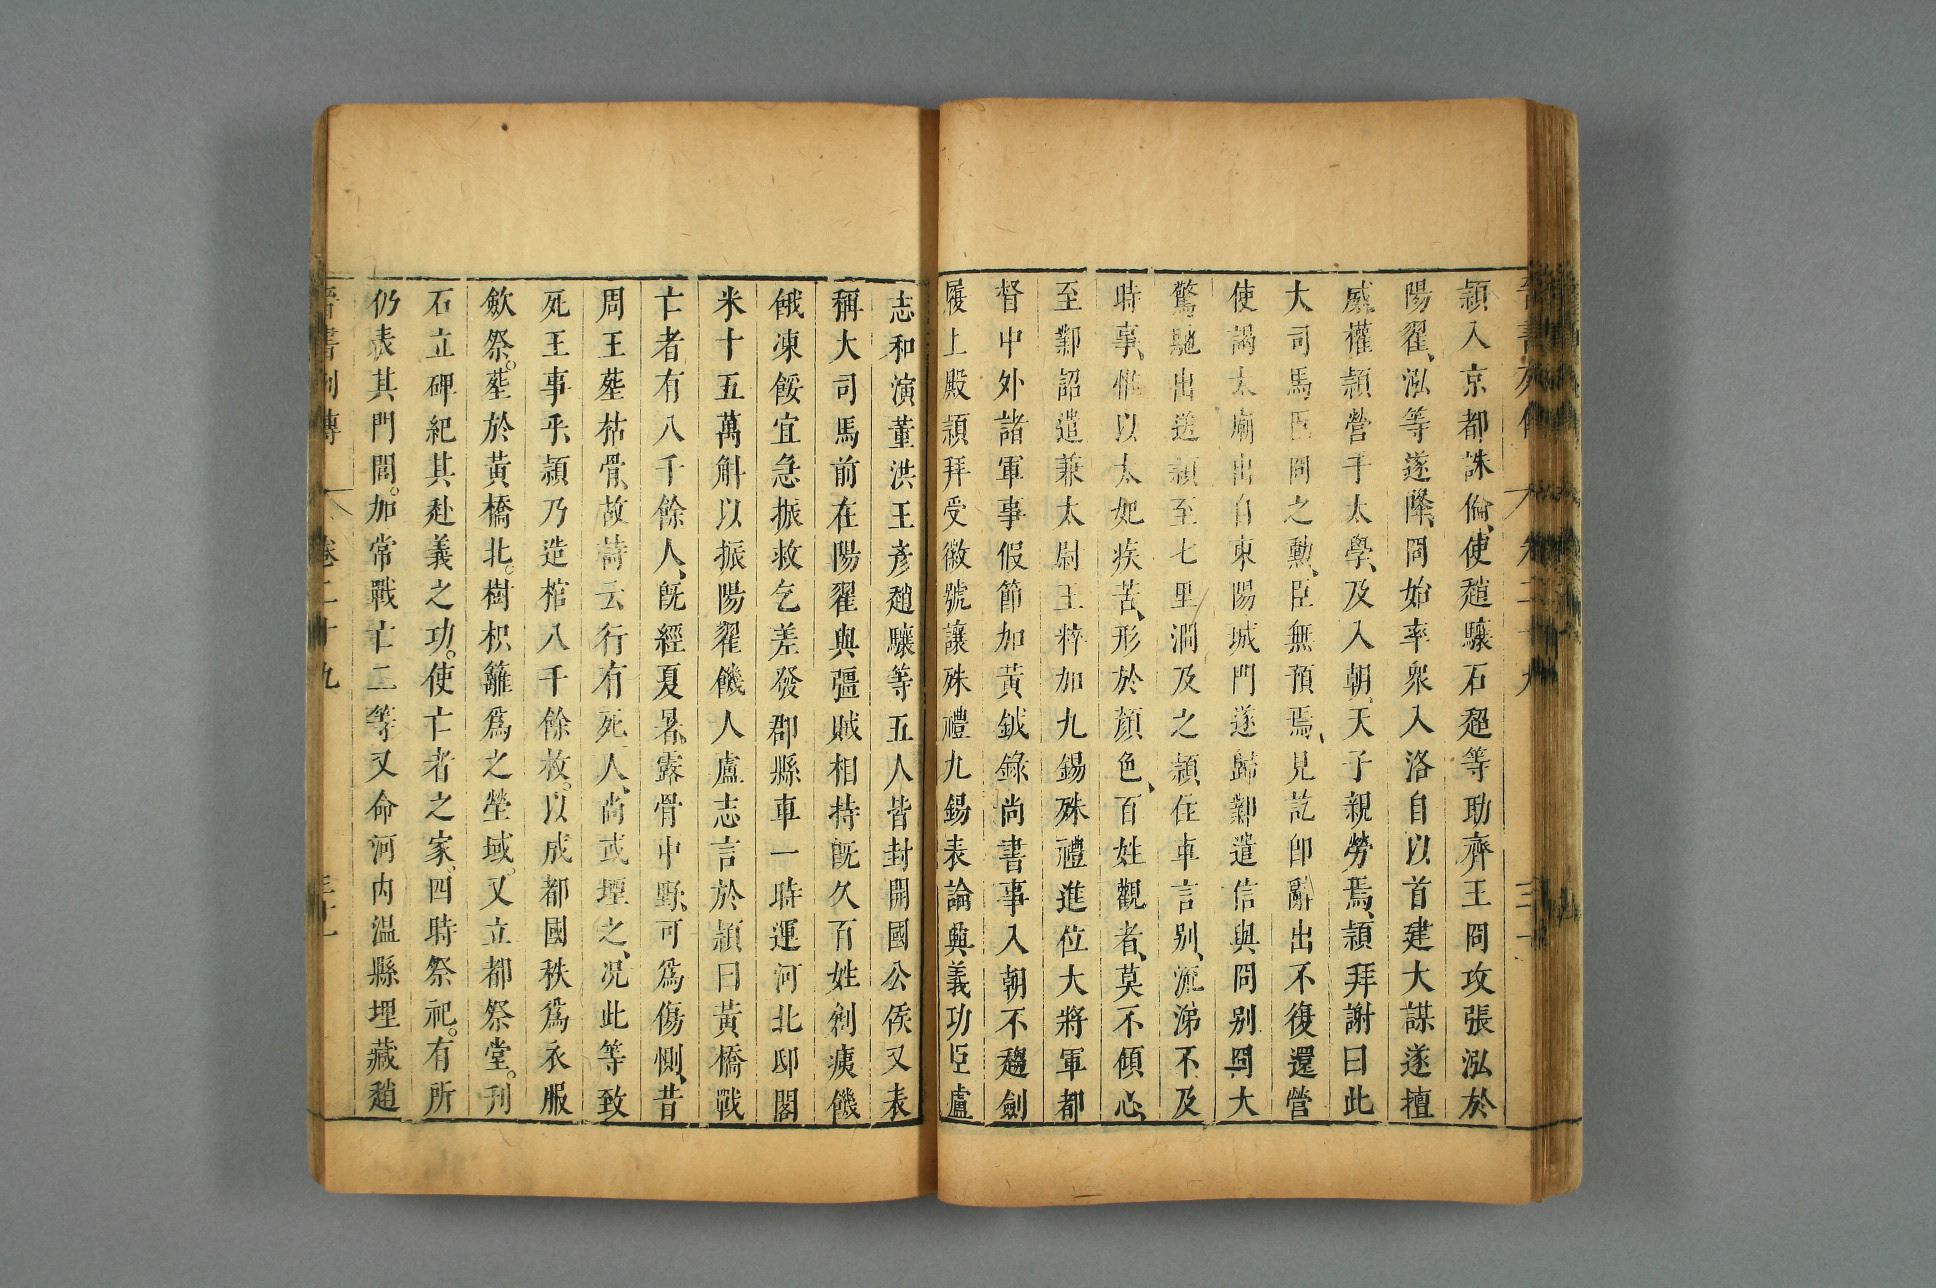 晉書列傳 卷二十九 三十
穎入京都誅倫、使趙驤石超等助齊王冏攻張泓於
陽翟、泓等遂降、冏始率衆入洛自以首建大謀遂擅
威權穎營于太學、及入朝、天子親勞焉、穎拜謝曰此
大司馬臣冏之勳、臣無預焉、見訖卽辭出不復還營
使謁太廟出自東陽城門遂歸鄴遣信與冏别冏大
驚馳出送穎至七里澗及之穎住車言别、流涕不及
時事、惟以太妃疾苦、形於顏色、百姓觀者、莫不傾心、
至鄴詔遣兼太尉王粹加九錫殊禮進位大將軍都
督中外諸軍事假節加黃鉞錄尚書事入朝不趨劍
履上殿穎拜受徽號讓殊禮九錫表論興義功臣盧
志和演董洪王彥趙驤等五人皆封開國公侯又表
稱大司馬前在陽翟與彊賊相持旣久百姓創痍饑
餓凍餒宜急振救乞差發郡縣車一時運河北邸閣
米十五萬斛以振陽翟饑人盧志言於穎曰黃橋戰
亡者有八千餘人、旣經夏暑、露骨中野、可爲傷惻、昔
周王葬枯骨、故詩云行有死人、尚或墐之、况此等致
死王事乎、穎乃造棺八千餘枚。以成都國秩爲衣服
歛祭。葬於黃橋北。樹枳籬爲之塋域。又立都祭堂。刊
石立碑紀其赴義之功。使亡者之家、四時祭祀。有所
仍表其門閭。加常戰亡二等又命河内温縣埋藏趙
晉書列傳 卷二十九 三十一